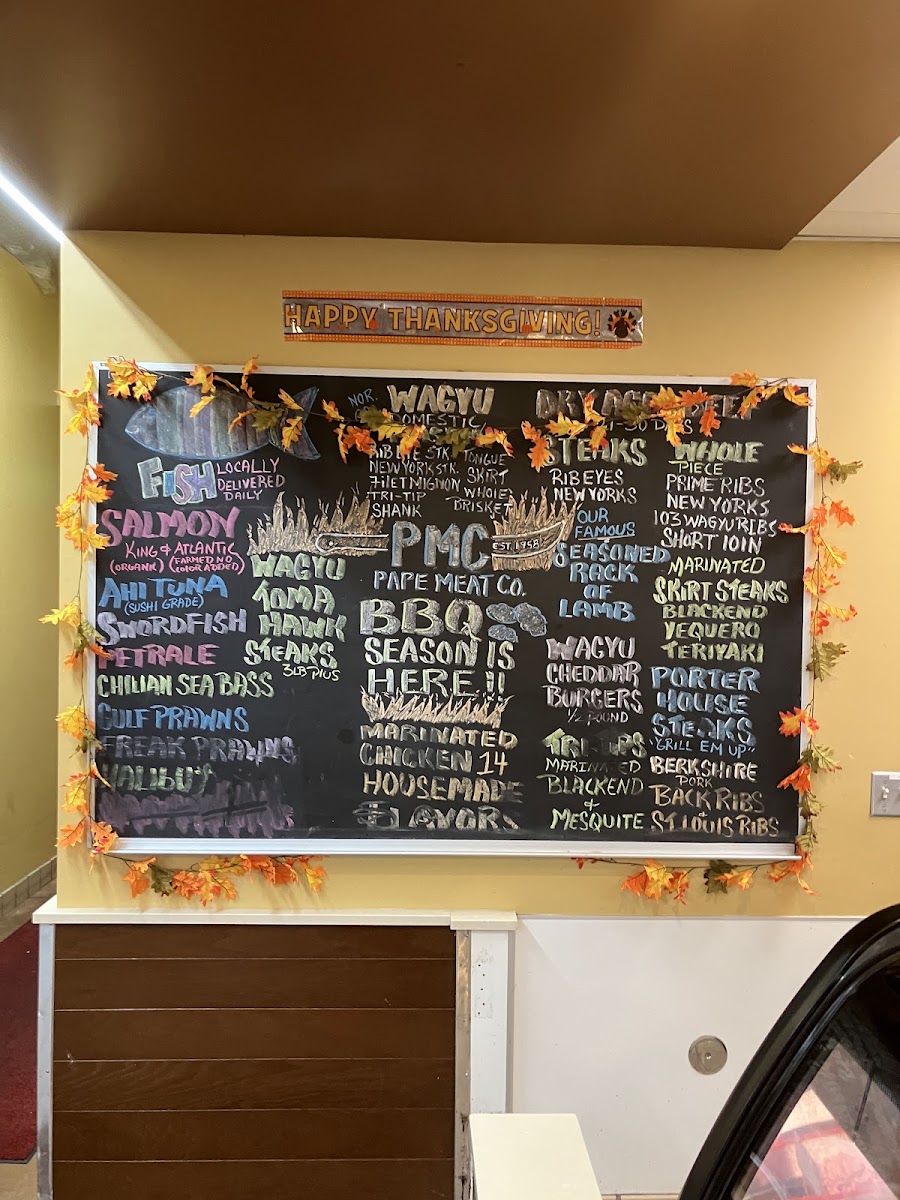 HAPPY THANKSGIVING!
FISH
LOCALLY
DELIVERED
DAILY
SALMON
KING & ATLANTIC
(ORGANIC) (FARMED, NO
COLOR ADDED)
AHI TUNA
(SUSHI GRADE)
SWORDFISH
PETRALE
CHILIAN SEA BASS
GULF PRAWNS
FREAK PRAWNS
HALIBUT
WAGYU
TOMA
HAWK
STEAKS
3LB PLUS
NOR.
WAGYU
DOMESTIC
RIB EYE STK.
NEW YORK STK.
FILET MIGNON
TRI-TIP
SHANK
TONGUE
SKIRT
WHOLE
BRISKET
PMC
EST. 1958
PAPE MEAT CO.
BBQ
SEASON IS
HERE!!
MARINATED
CHICKEN 14
HOUSEMADE
FLAVORS
DRY AGED BEEF
21-30 DAYS
STEAKS
RIB EYES
NEW YORKS
OUR
FAMOUS
SEASONED
RACK
OF
LAMB
WAGYU
CHEDDAR
BURGERS
1/2 POUND
TRI-TIPS
MARINATED
BLACKEND
&
MESQUITE
WHOLE
PIECE
PRIME RIBS
NEW YORKS
103 WAGYU RIBS
SHORT LOIN
MARINATED
SKIRT STEAKS
BLACKEND
VEQUERO
TERIYAKI
PORTER
HOUSE
STEAKS
"GRILL EM UP"
BERKSHIRE
PORK
BACK RIBS
&
ST. LOUIS RIBS